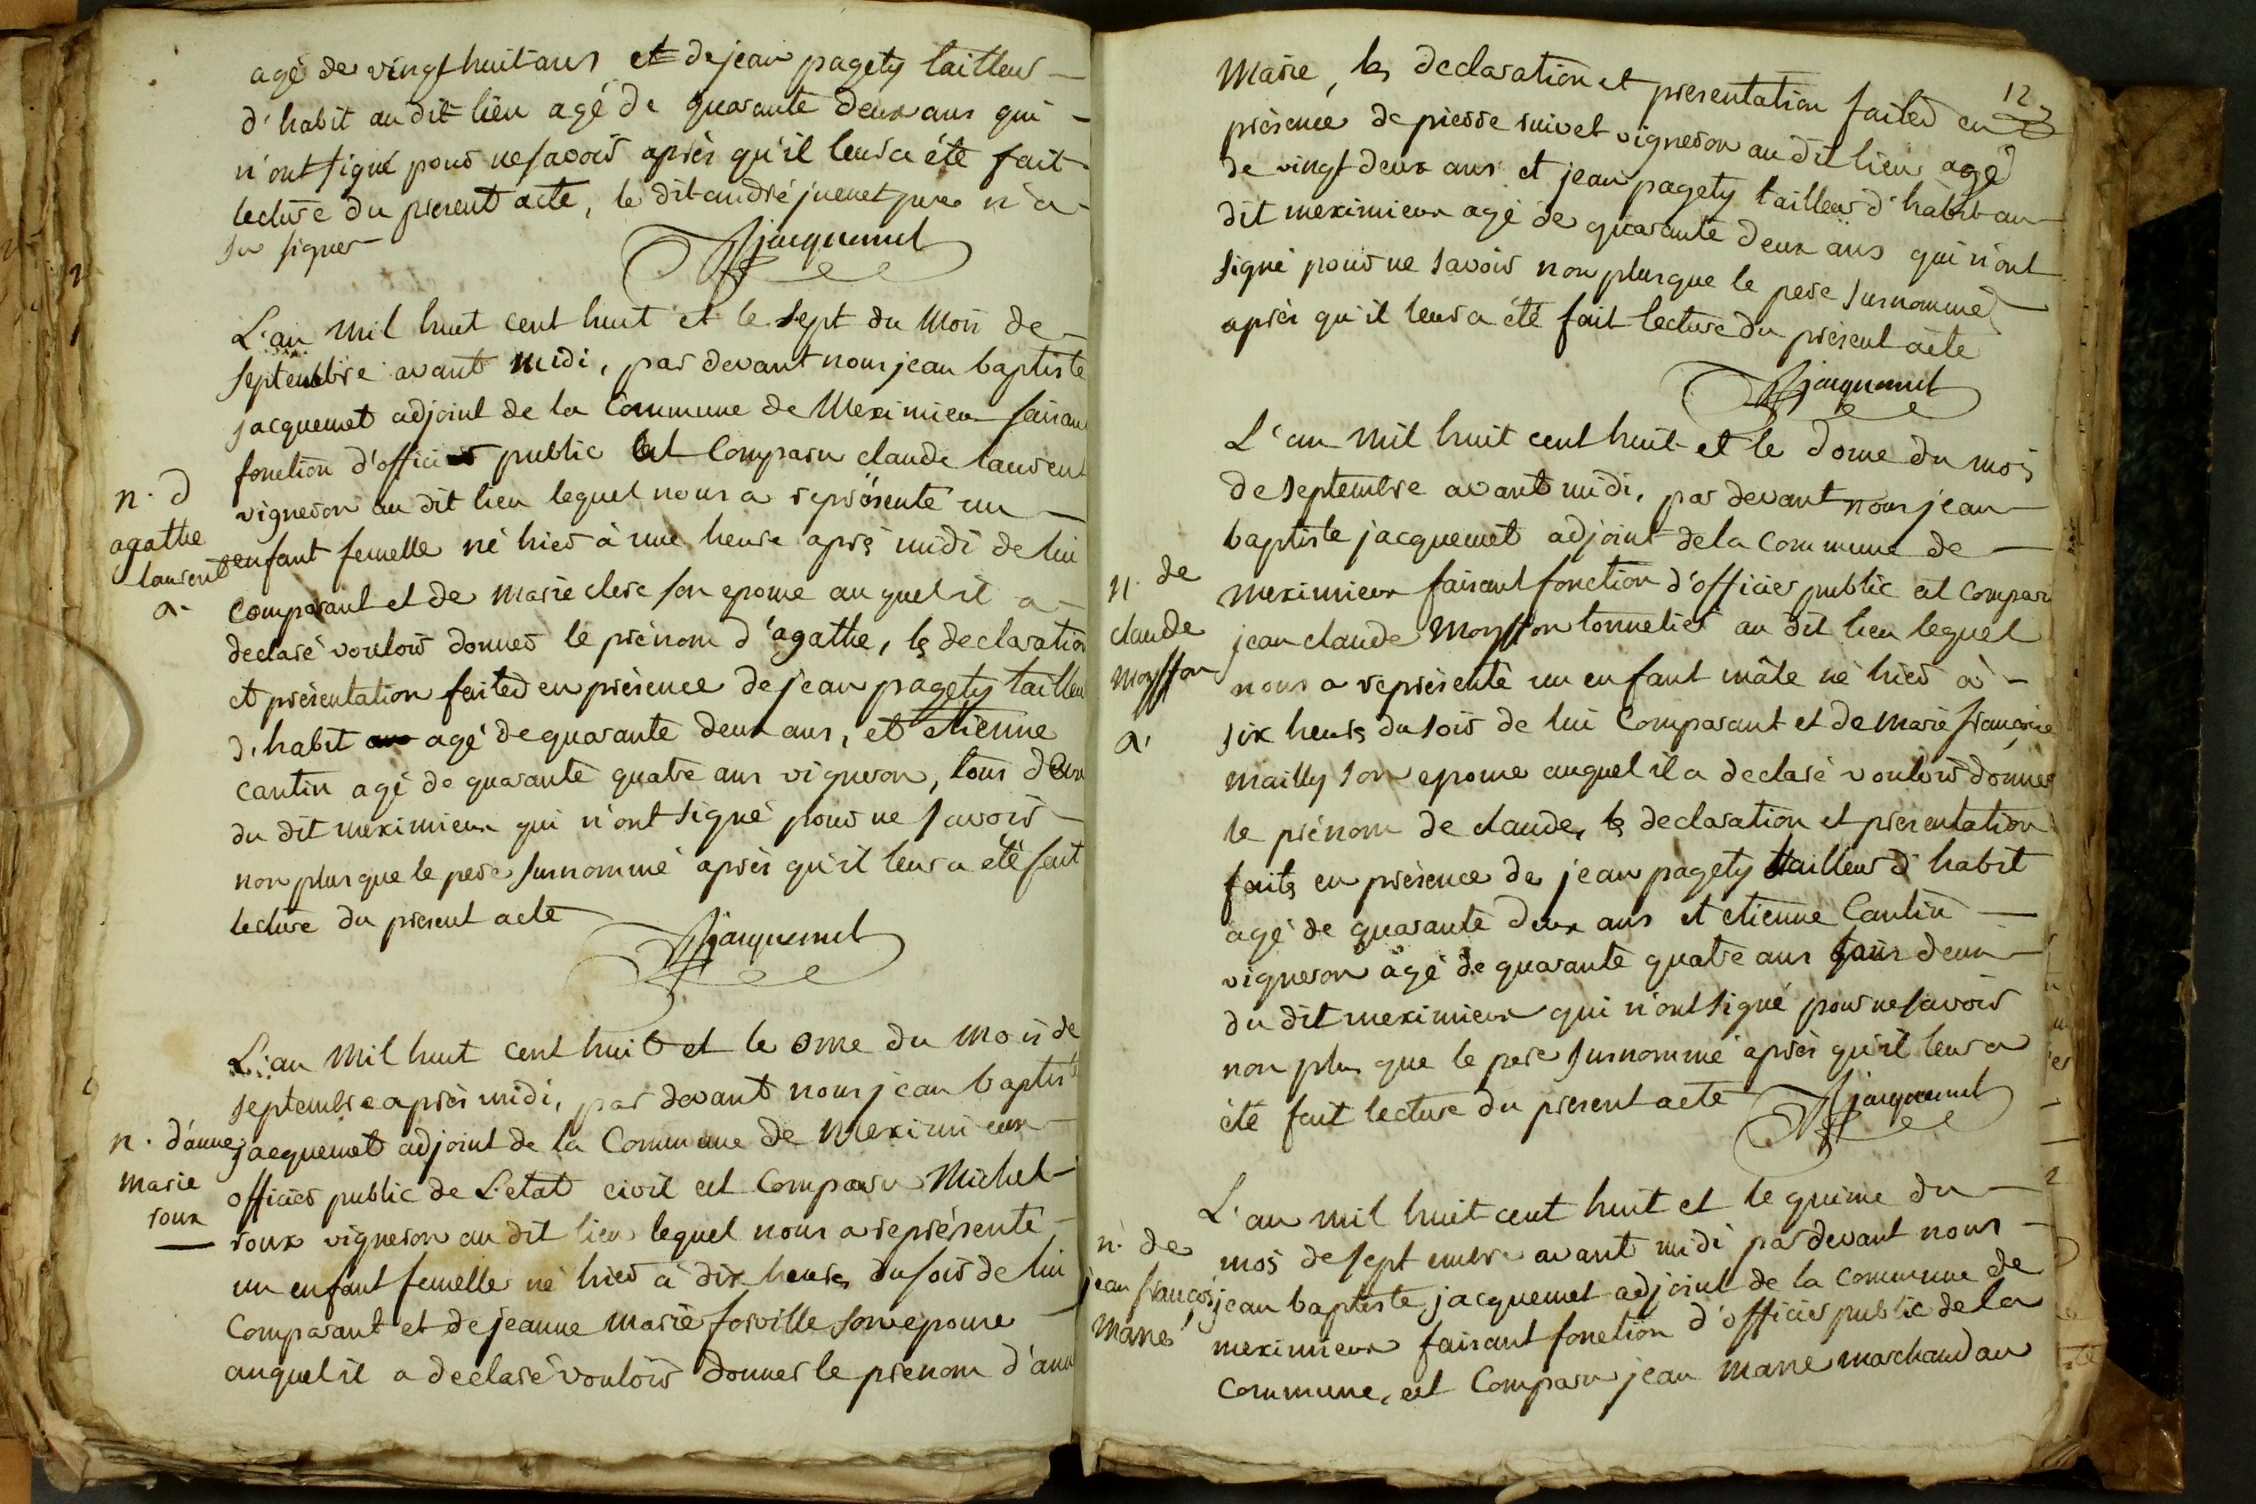 agé de vingt huit ans et de jean pagety tailleur
d'habit au dit lieu agé de quarante deux ans qui
n'ont signé pour ne savoir après qu'il leur a été fait
lecture du present acte, le dit andré juenet pere n'a
su signer
Jjacquemet
L'an mil huit cent huit et le sept du mois de
septembre avant midi, par devant nous jean baptiste
jacquemet adjoint de la Commune de Meximieux faisant
fonction d'officier public est Comparu claude laurent
vigneron au dit lieu lequel nous a représenté un
n. d
agathe
laurent
a.
enfant femelle né hier à une heure après midi de lui
Comparant et de marie clerc son epouse auquel il a
declaré vouloir donner le prénom d'agathe, les declaration
et présentation faites en présence de jean pagety tailleur
d'habit agé de quarante deux ans, et etienne
cantin agé de quarante quatre ans vigneron, tous deux
du dit meximieux qui n'ont signé pour ne savoir
non plus que le pere surnommé après qu'il leur a été fait
lecture du present acte
Jjacquemet
L'an mil huit cent huit et le onze du mois de
septembre après midi, par devant nous jean baptiste
n. d'anne
marie
roux
jacquemet adjoint de la Commune de Meximieux
officier public de L'etat civil est Comparu Michel
roux vigneron au dit lieu lequel nous a représenté
un enfant femelle né hier à dix heures du soir de lui
Comparant et de jeanne marie forville son epouse
auquel il a declaré vouloir donner le prenom d'anne
12
Marie, les declaration et presentation faites en
présence de pierre suivet vigneron au dit lieu agé
de vingt deux ans et jean pagety tailleur d'habit au
dit meximieux agé de quarante deux ans qui n'ont
signé pour ne savoir non plus que le pere surnommé
après qu'il leur a été fait lecture du présent acte
Jjacquemet
L'an mil huit cent huit et le douze du mois
de septembre avant midi, par devant nous jean
baptiste jacquemet adjoint de la Commune de
n. de
claude
moysson
a.
meximieux faisant fonction d'officier public est comparu
jean claude Moysson tonnelier au dit lieu lequel
nous a représenté un enfant mâle né hier à
six heures du soir de lui Comparant et de marie françoise
mailly son epouse auquel il a declaré vouloir donner
le prénom de claude, les declaration et presentation
faites en présence de jean pagety tailleur d'habit
agé de quarante deux ans et etienne Cantin
vigneron agé de quarante quatre ans tous deux
du dit meximieux qui n'ont signé pour ne savoir
non plus que le pere surnommé après qu'il leur a
été fait lecture du present acte
Jjacquemet
L'an mil huit cent huit et le quinze du
mois de septembre avant midi par devant nous
n. de
jean françois
marre
jean baptiste jacquemet adjoint de la commune de
meximieux faisant fonction d'officier public de la
commune, est Comparu jean marre marchand au